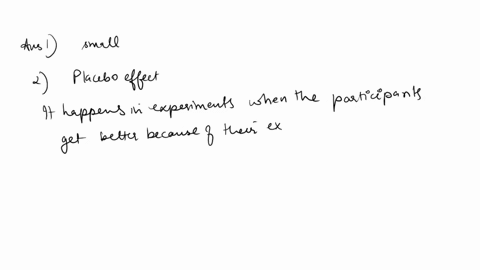 Ans 1) small
2) Placebo effect
It happens in experiments when the participants
get better because of their ex